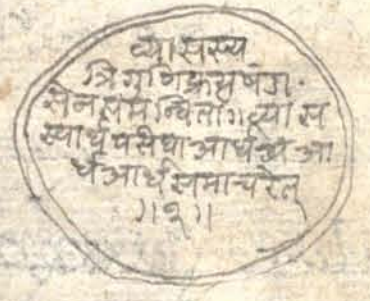 व्यासस्य
त्रिगुणिकृत्रषंडा
सेनसमन्वितांगव्यास
स्यार्धपरीधाआर्धअंआ
र्धआर्धसमाचरेत्
॥१॥